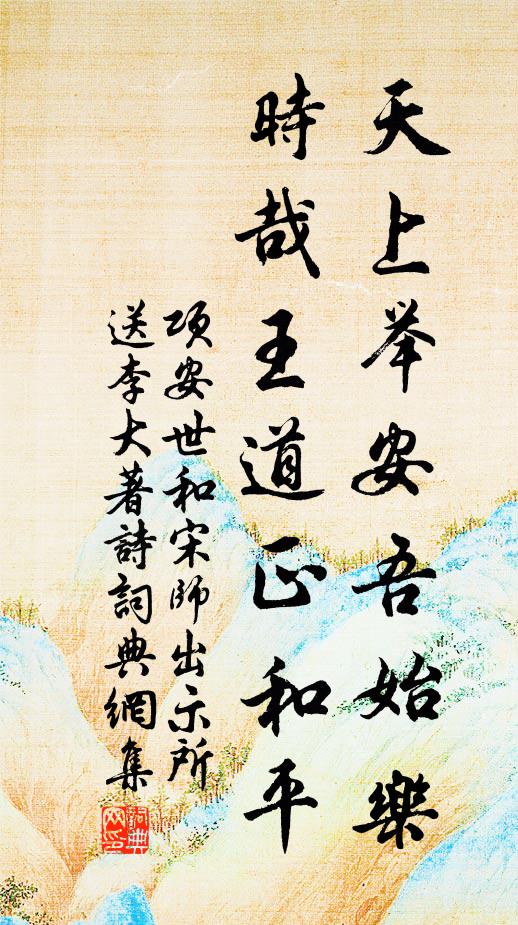 天上举安吾始樂
時哉王道正和平
项安世和宋帅出示所
送李大著詩詞典網集
詞典
网印